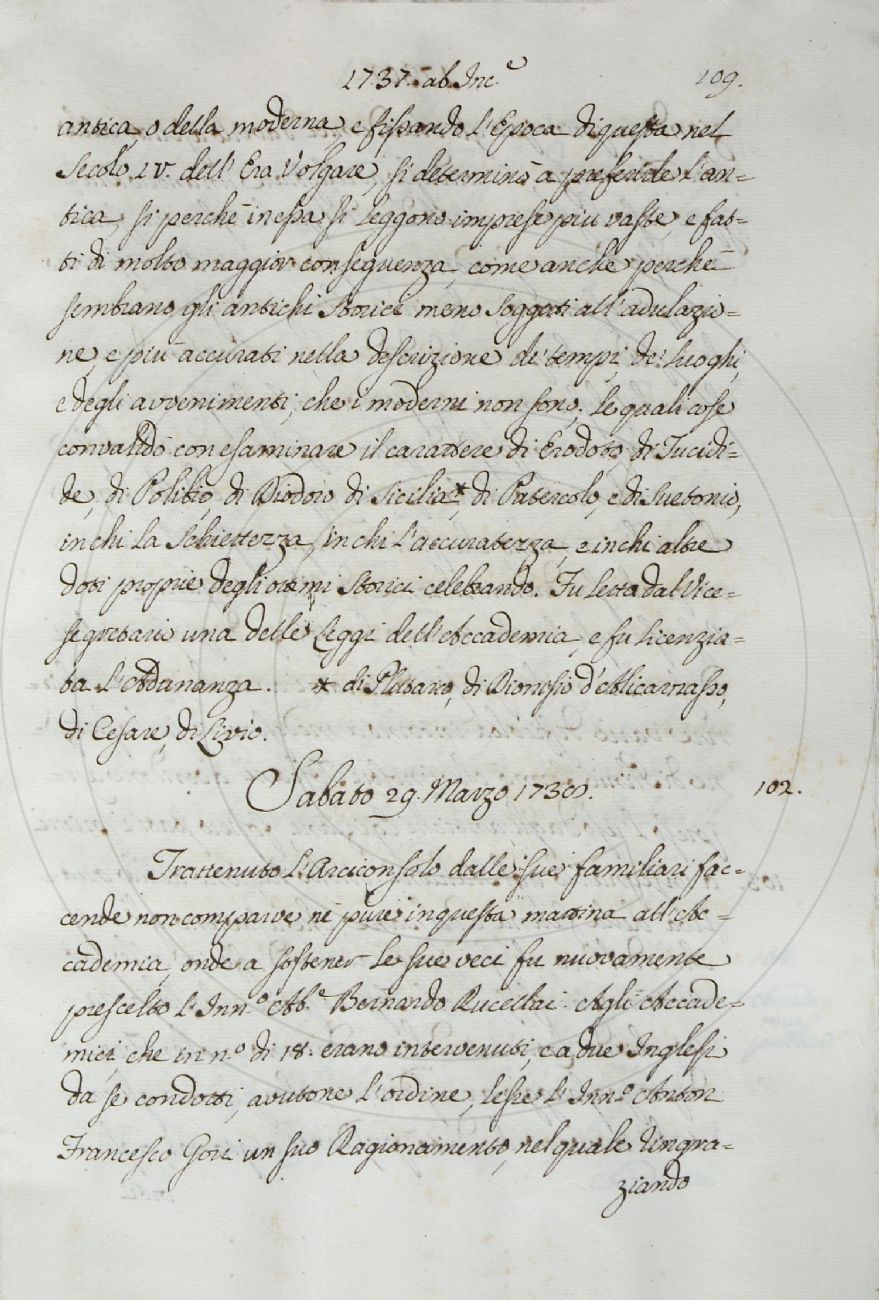 1737. ab Inc.e 109.
antica, o della moderna, e fissando l'Epoca di questa nel
Secolo IV. dell'Era Volgare, si determinò a preferirle l'an=
tica, si perchè in essa si leggono imprese più vaste, e fat=
ti di molto maggior conseguenza, come anche perchè
sembrano gli antichi Storici meno soggetti all'adulazio=
ne, e più accurati nella descrizione de' tempi, de' luoghi,
e degli avvenimenti, che i moderni non sono. Le quali cose
convalidò con esaminare il carattere di Erodoto, di Tucidi=
de, di Polibio, di Diodoro di Sicilia*, di Patercolo, e di Suetonio,
in chi la Schiettezza, in chi l'accuratezza, e in chi altre
doti proprie degli ottimi Storici celebrando. Fu letta dal Vice=
segretario una delle Leggi dell'Accademia, e fu licenzia=
ta l'Adunanza. * di Plutarco, di Dionisio d'Alicarnasso,
di Cesare, di Livio.
Sabato 29. Marzo 1738. 102.
Trattenuto l'Arciconsolo dalle sue familiari fac=
cende non comparve nè pure in questa mattina all'Ac=
cademia, onde a sostener le sue veci fu nuovamente
prescelto l'Inn.o Ab.e Bernardo Rucellai. Agli Accade=
mici, che in n.o di 18. erano intervenuti, e a due Inglesi
da se condotti, avutone l'ordine, lesse l'Inn.o Anton
Francesco Gori un suo Ragionamento, nel quale ringra=
ziando